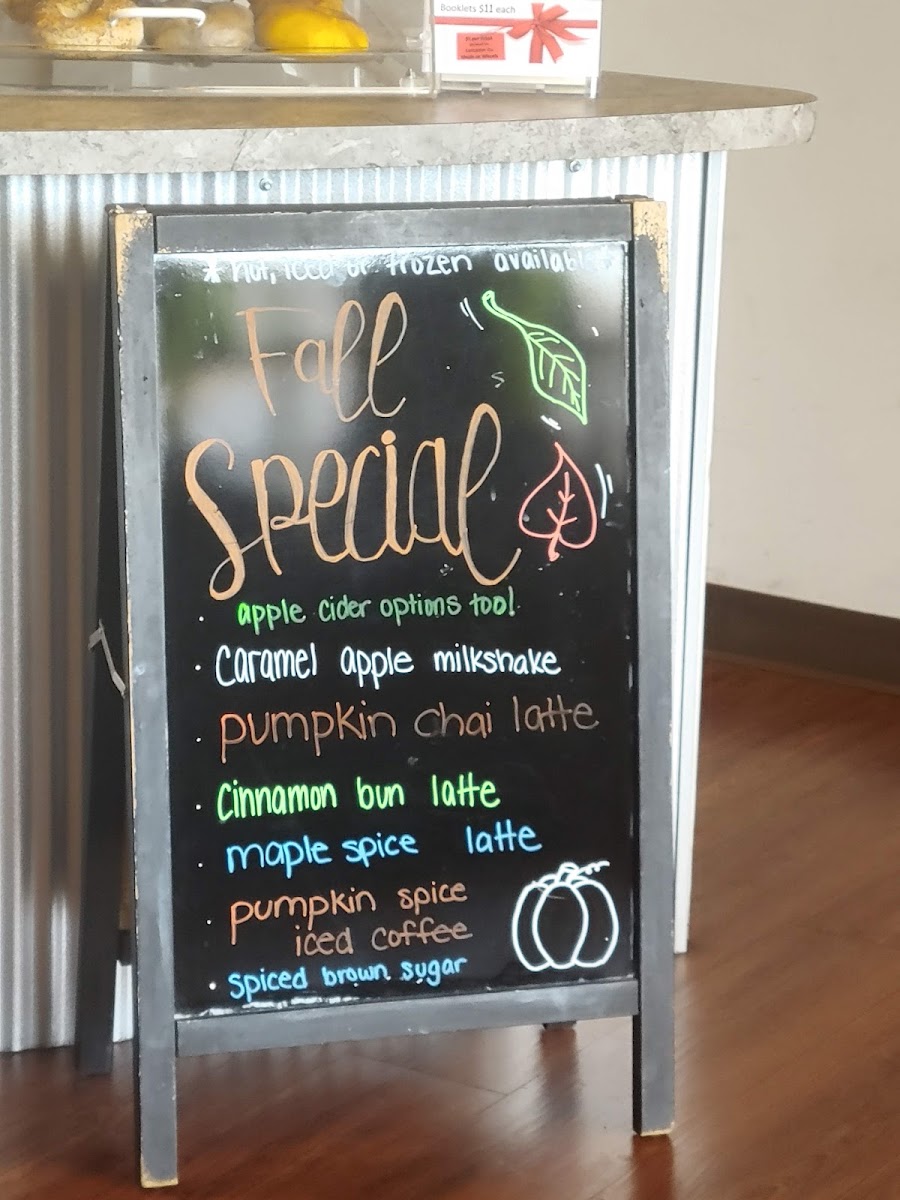 Booklets $11 each
* hot, iced or frozen available *
Fall
Special
· apple cider options too!
· Caramel apple milkshake
· pumpkin chai latte
· Cinnamon bun latte
· maple spice latte
· pumpkin spice
iced coffee
· spiced brown sugar